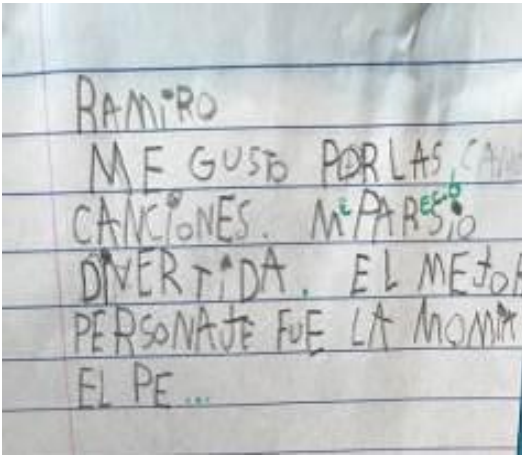 RAMIRO
ME GUSTO POR LAS CAN
CANCIONES. Me PARSIO ECIÓ
DIVERTIDA. EL MEJOR
PERSONAJE FUE LA MOMIA
EL PE...